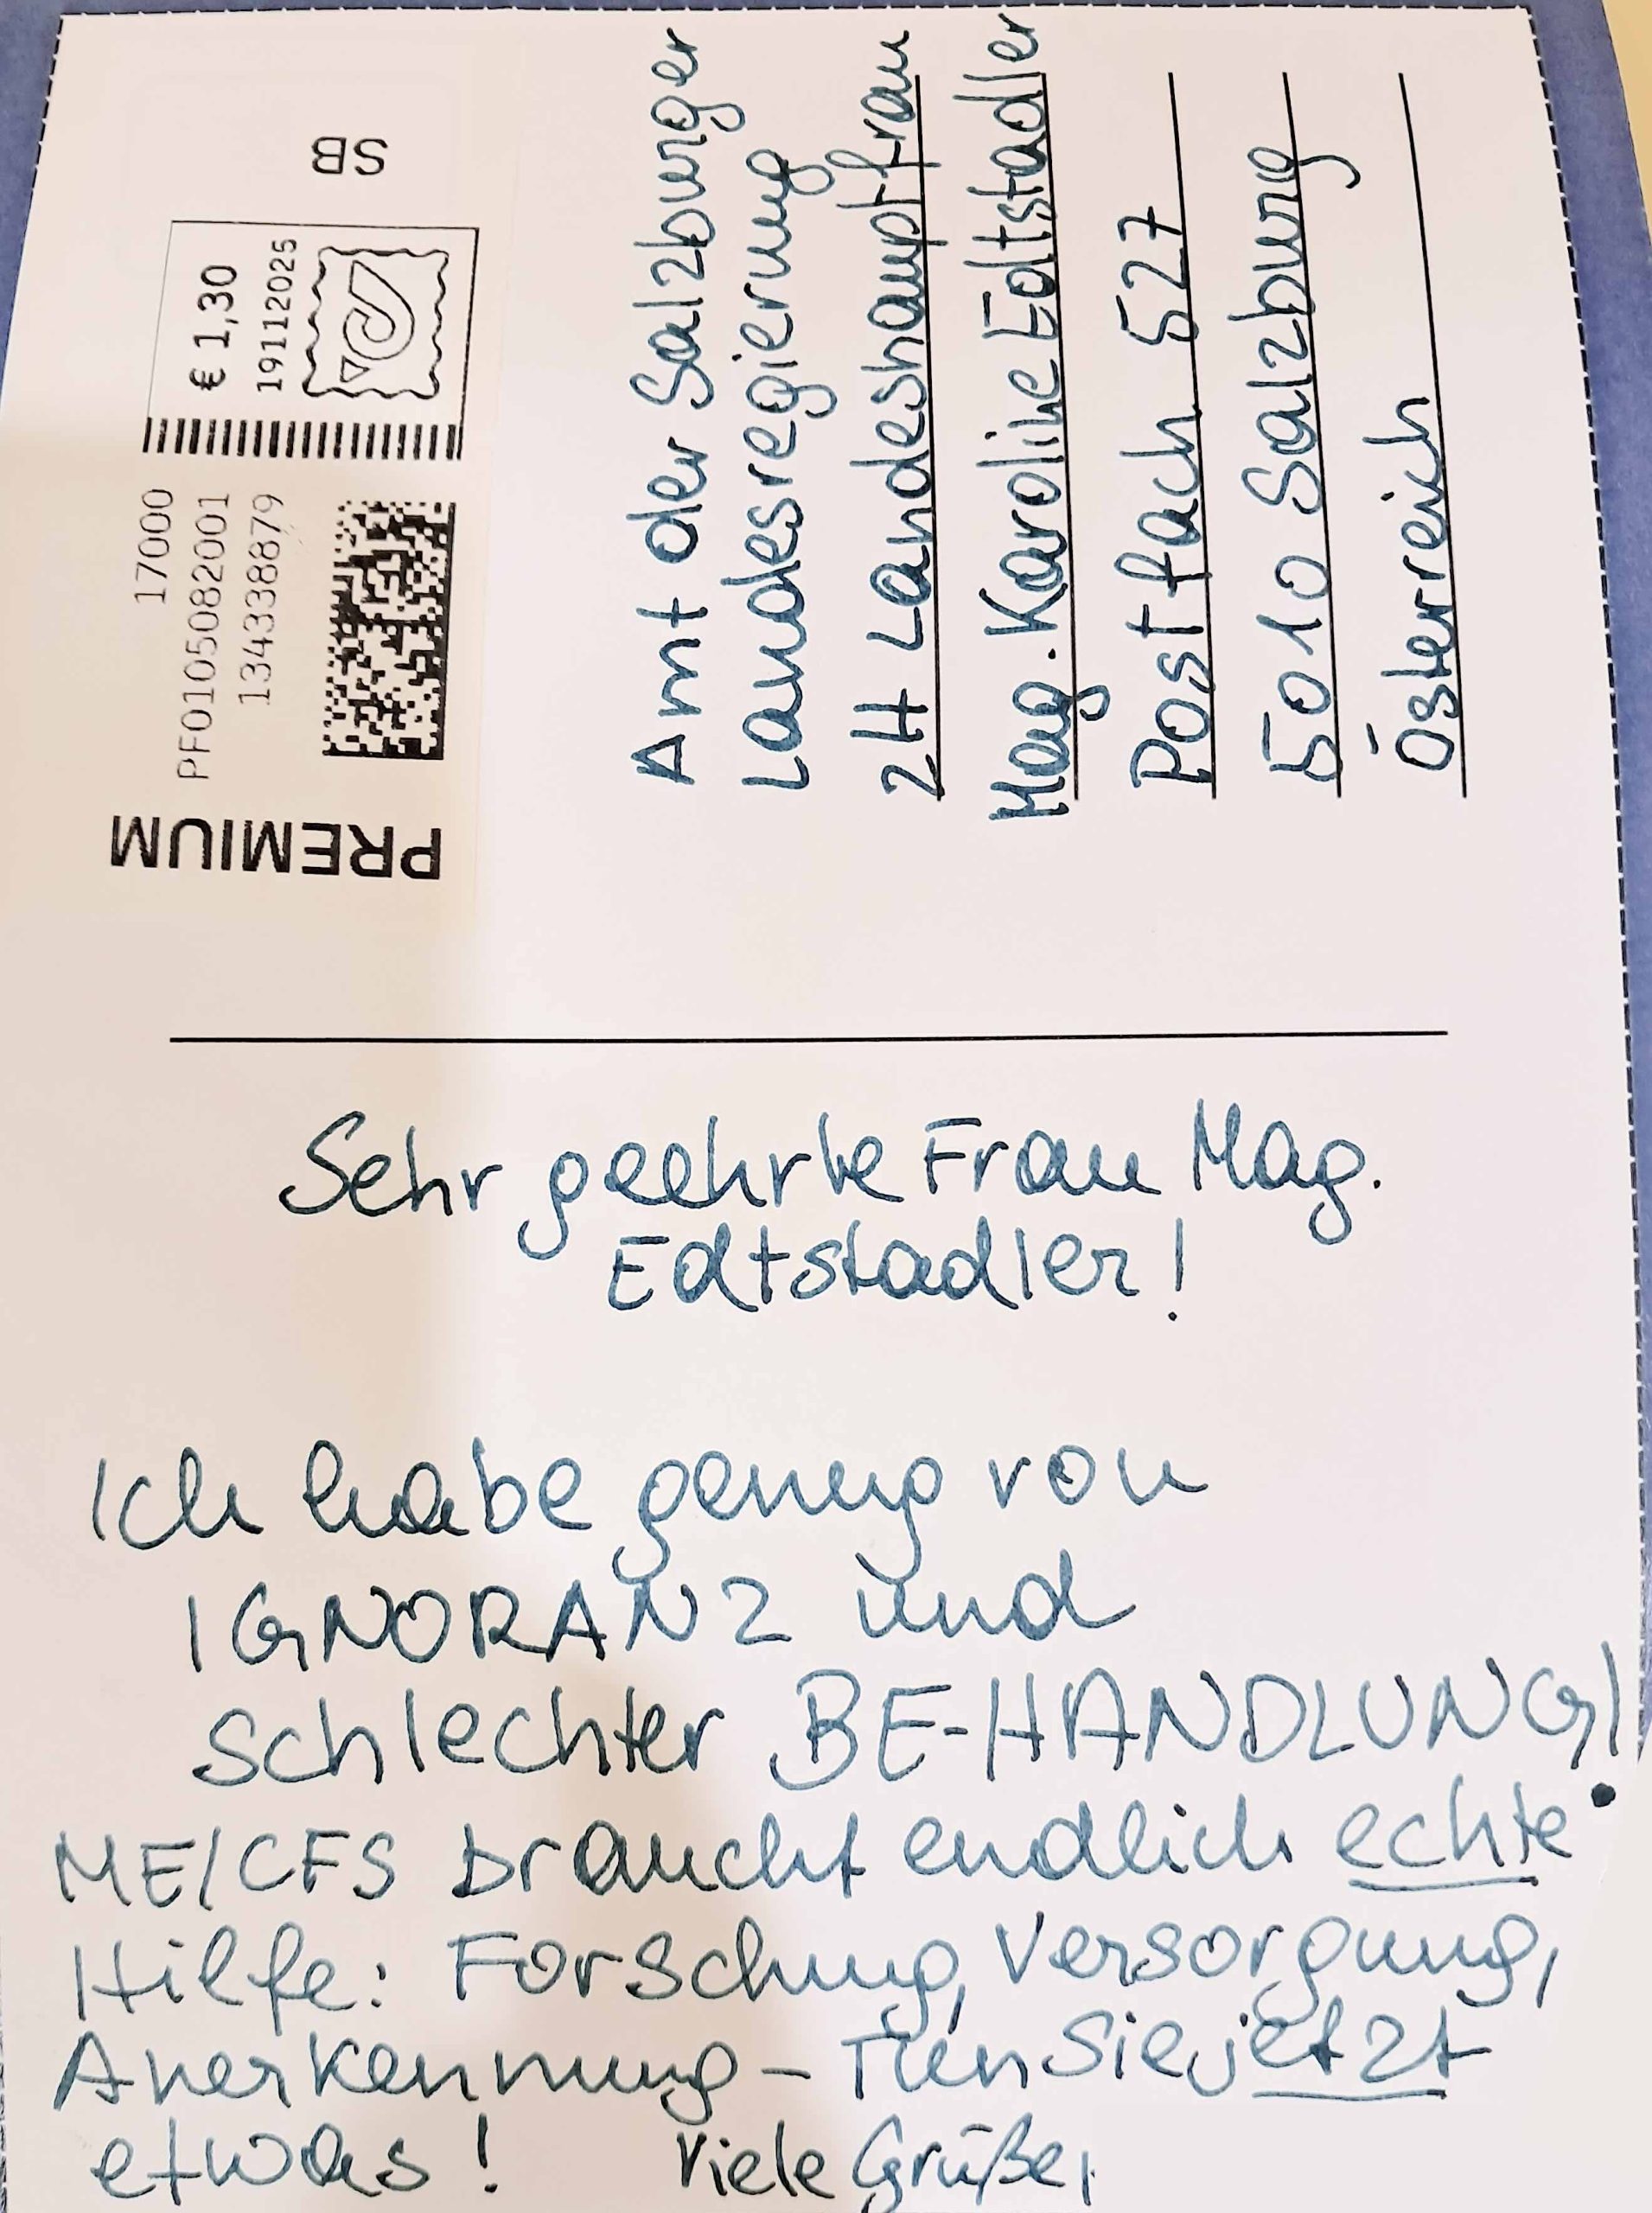 PREMIUM
17000
PF010508082001
1343338879
€ 1,30
19112025
SB
Amt der Salzburger
Landesregierung
ZH Landeshauptfrau
Mag. Karoline Edtstadler
Postfach 527
5010 Salzburg
Österreich
Sehr geehrte Frau Mag.
Edtstadler!
Ich habe genug von
IGNORANZ und
schlechter BE-HANDLUNG!
ME/CFS braucht endlich echte
Hilfe: Forschung, Versorgung,
Anerkennung – Tuen Sie jetzt
etwas! Viele Grüße,